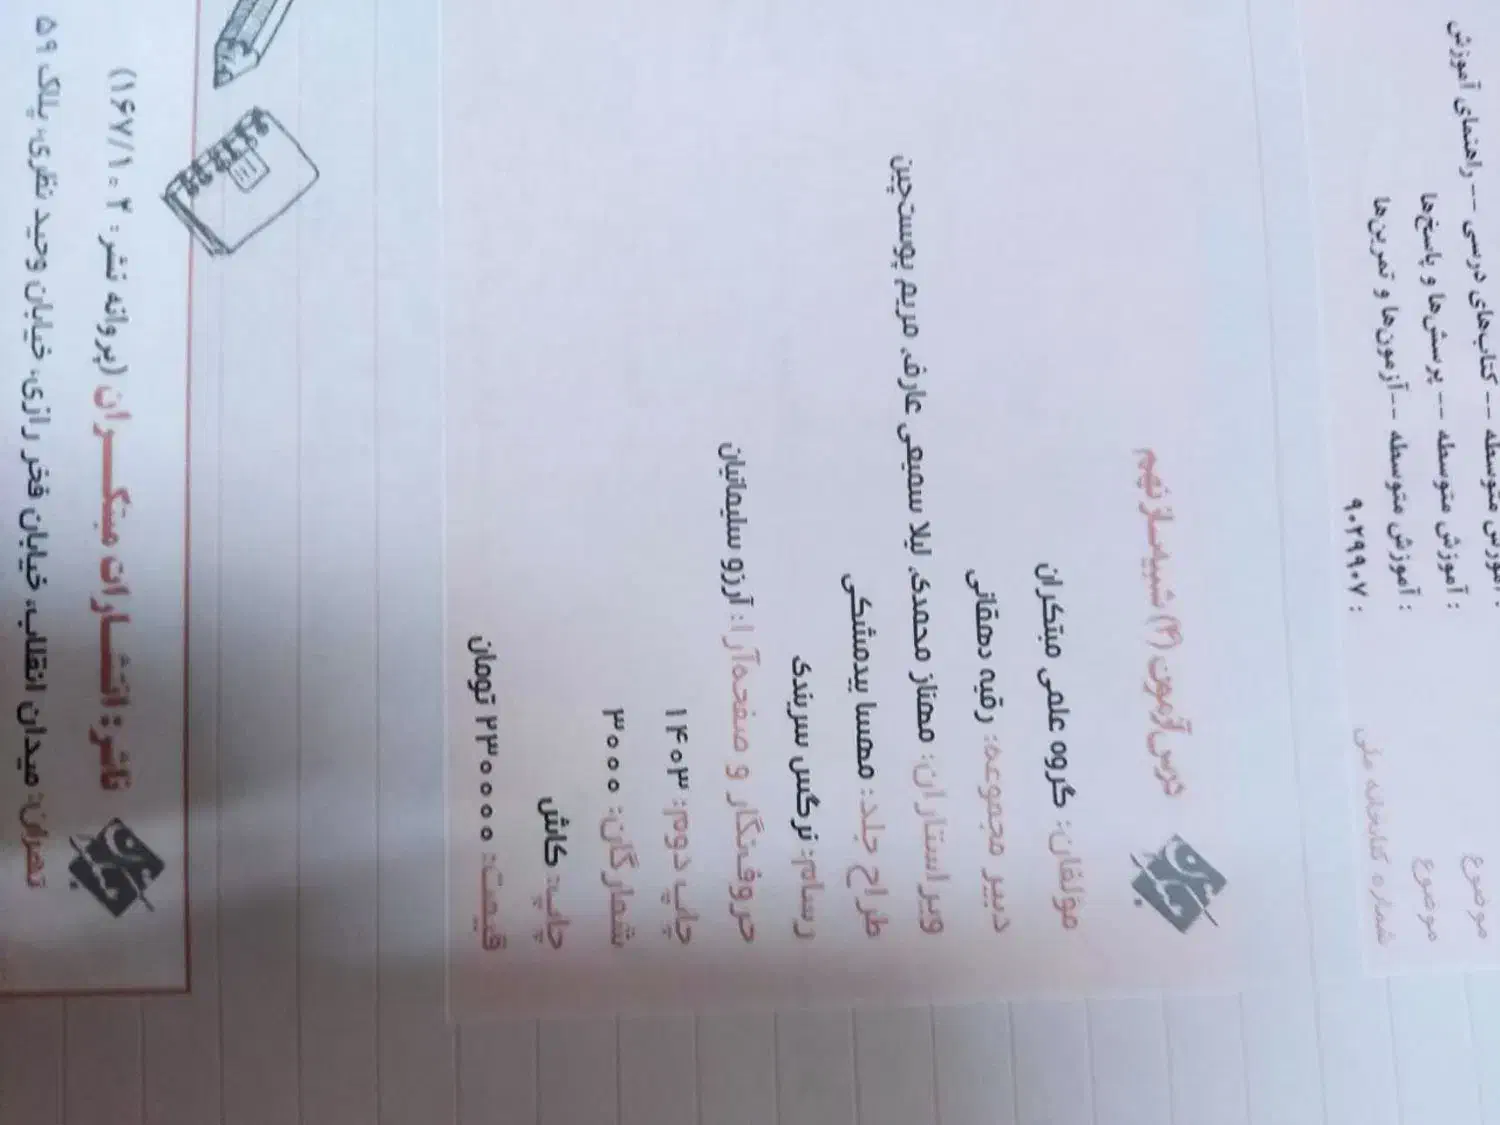 آموزش متوسطه -- کتاب‌های درسی -- راهنمای آموزش
موضوع : آموزش متوسطه -- پرسش‌ها و پاسخ‌ها
موضوع : آموزش متوسطه -- آزمون‌ها و تمرین‌ها
شماره کتابخانه ملی : ۹۰۲۹۹۰۷
درس‌آزمون (۲) شبیه‌ساز نهم
مؤلفان: گروه علمی مبتکران
دبیر مجموعه: رقیه دهقانی
ویراستاران: مهناز محمدی، لیلا سمیعی عارف، مریم پوست‌چین
طراح جلد: مهسا بیدمشکی
رسام: نرگس سربندی
حروف‌نگار و صفحه‌آرا: آرزو سلیمانیان
چاپ دوم: ۱۴۰۳
شمارگان: ۳۰۰۰
چاپ: کاش
قیمت: ۲۳۰۰۰۰ تومان
ناشر: انتشارات مبتکران (پروانه نشر: ۱۶۷/۱۰۲)
تهران: میدان انقلاب، خیابان فخر رازی، خیابان وحید نظری، پلاک ۵۹